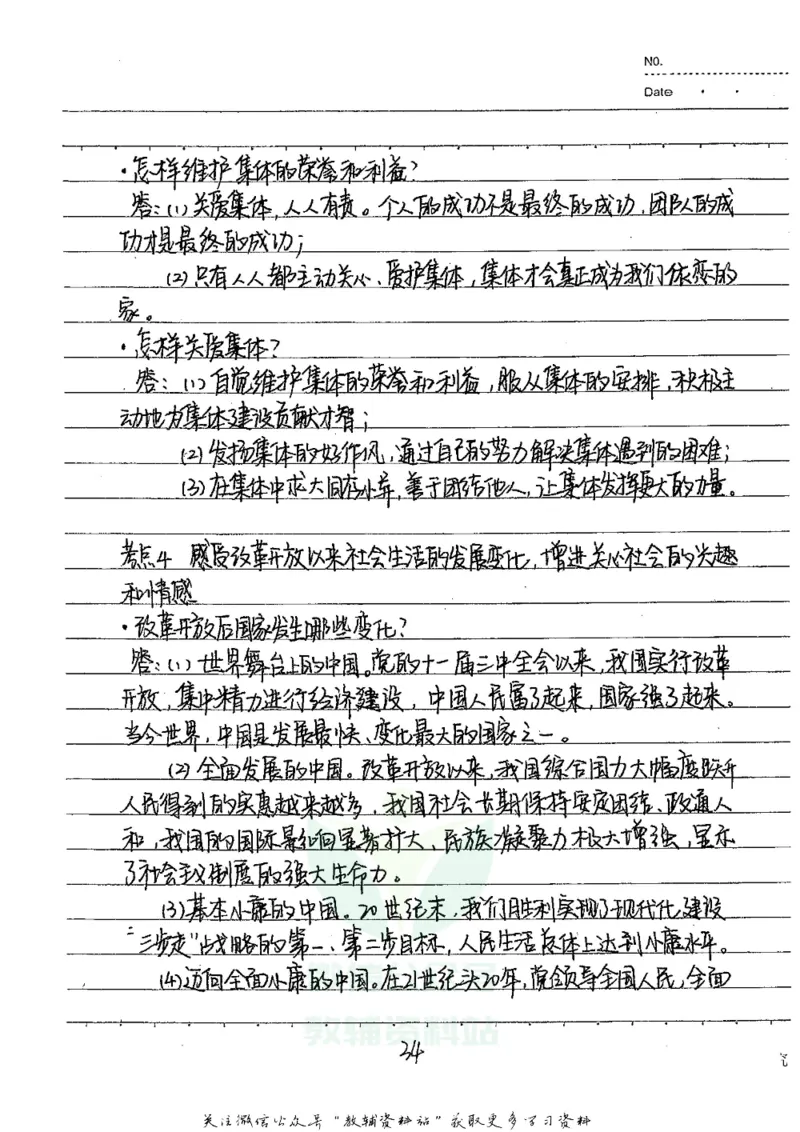 NO.
Date
·怎样维护集体的荣誉和利益?
答:(1)关爱集体,人人有责。个人的成功不是最终的成功,团队的成
功才是最终的成功;
(2)只有人人都主动关心、爱护集体,集体才会真正成为我们依恋的
家。
·怎样关爱集体?
答:(1)自觉维护集体的荣誉和利益,服从集体的安排,积极主
动地为集体建设贡献才智;
(2)发扬集体的好作风,通过自己的努力解决集体遇到的困难;
(3)在集体中求大同存小异,善于团结他人,让集体发挥更大的力量。
考点4 感受改革开放以来社会生活的发展变化,增进关心社会的兴趣
和情感
·改革开放后国家发生哪些变化?
答:(1)世界舞台上的中国。党的十一届三中全会以来,我国实行改革
开放,集中精力进行经济建设,中国人民富了起来,国家强了起来。
当今世界,中国是发展最快、变化最大的国家之一。
(2)全面发展的中国。改革开放以来,我国综合国力大幅度跃升
人民得到的实惠越来越多,我国社会长期保持安定团结、政通人
和,我国的国际影响显著扩大,民族凝聚力极大增强,显示
了社会主义制度的强大生命力。
(3)基本小康的中国。20世纪末,我们胜利实现了现代化建设
"三步走"战略的第一、第二步目标,人民生活总体上达到小康水平。
(4)迈向全面小康的中国。在21世纪头20年,党领导全国人民,全面
教辅资料站
34
关注微信公众号"教辅资料站"获取更多学习资料